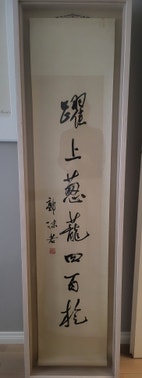 躍上蔥蘢四百旋
郭沫若